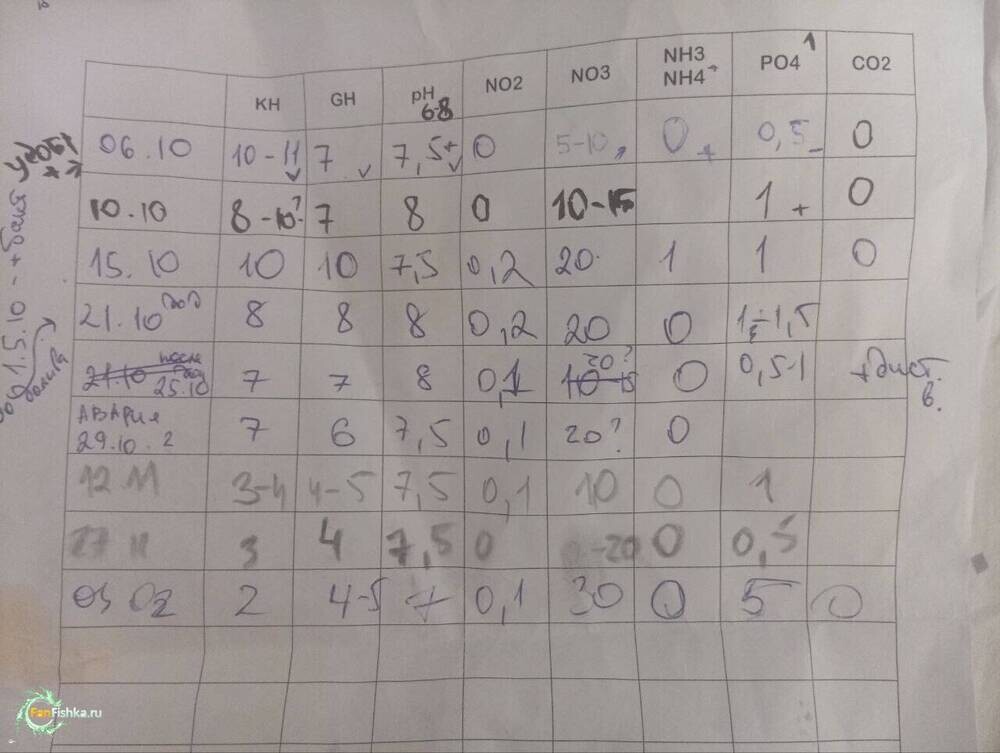 KH GH pH 6-8 NO2 NO3 NH3 NH4+ PO4 1 CO2
06.10 10-11 7 7,5+ 0 5-10 0+ 0,5- 0
10.10 8-10? 7 8 0 10-15 1+ 0
15.10 10 10 7,5 0,2 20 1 1 0
21.10 8 8 8 0,2 20 0 1÷1,5
21.10 после 25.10 7 7 8 0,1 10-15 20? 0 0,5-1 +дист. в.
АВАРИЯ
29.10.2 7 6 7,5 0,1 20? 0
12 11 3-4 4-5 7,5 0,1 10 0 1
27 11 3 4 7,5 0 -20 0 0,5
03 02 2 4-5 7 0,1 30 0 5 0
FanFishka.ru